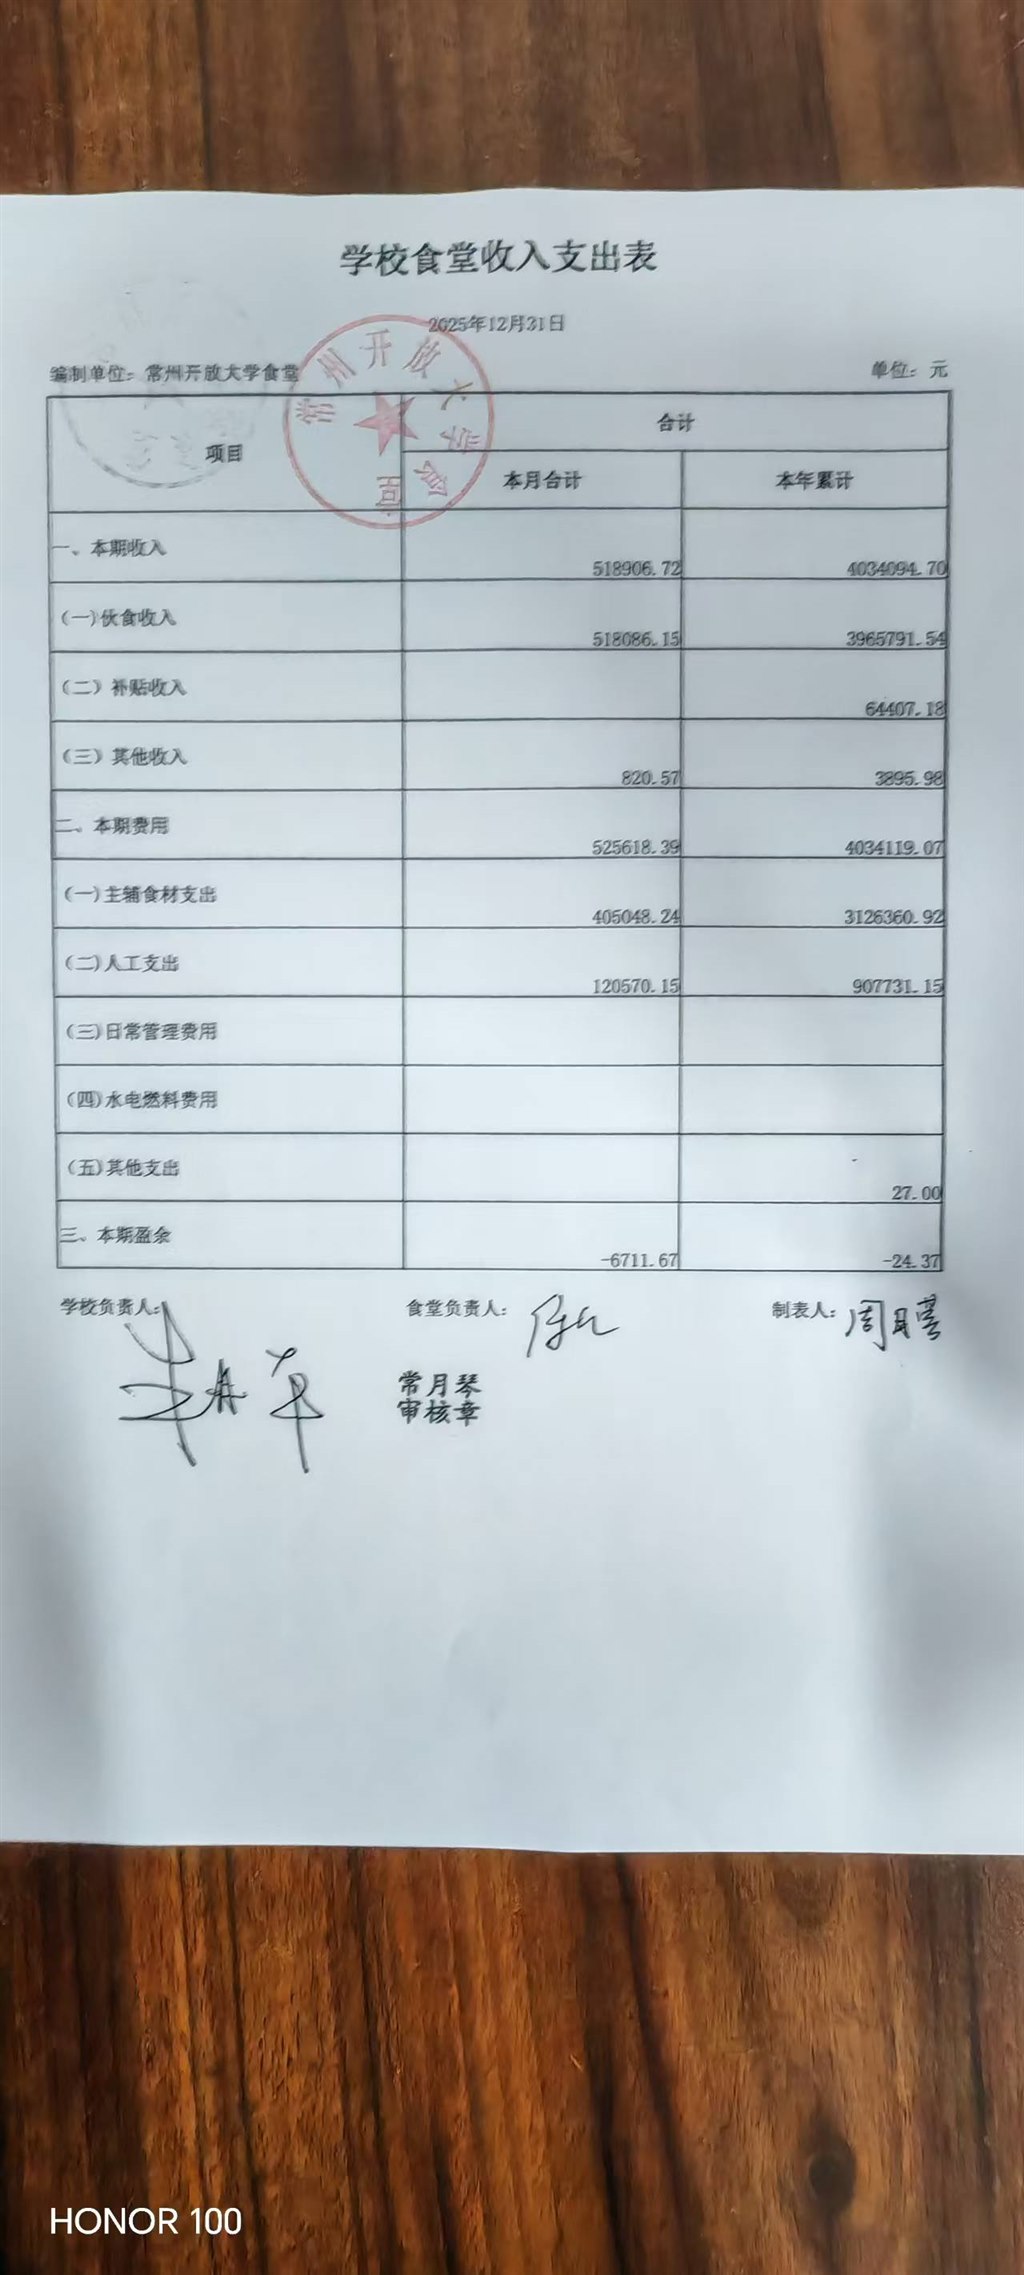 学校食堂收入支出表
2025年12月31日
编制单位：常州开放大学食堂 单位：元
常州开放大学食堂
项目 合计
本月合计 本年累计
一、本期收入 518906.72 4034094.70
(一)伙食收入 518086.15 3965791.54
(二) 补贴收入 64407.18
(三) 其他收入 820.57 3895.98
二、本期费用 525618.39 4034119.07
(一)主辅食材支出 405048.24 3126360.92
(二)人工支出 120570.15 907731.15
(三)日常管理费用
(四)水电燃料费用
(五)其他支出 27.00
三、本期盈余 -6711.67 -24.37
学校负责人： 食堂负责人： 制表人：
常月琴
审核章
HONOR 100